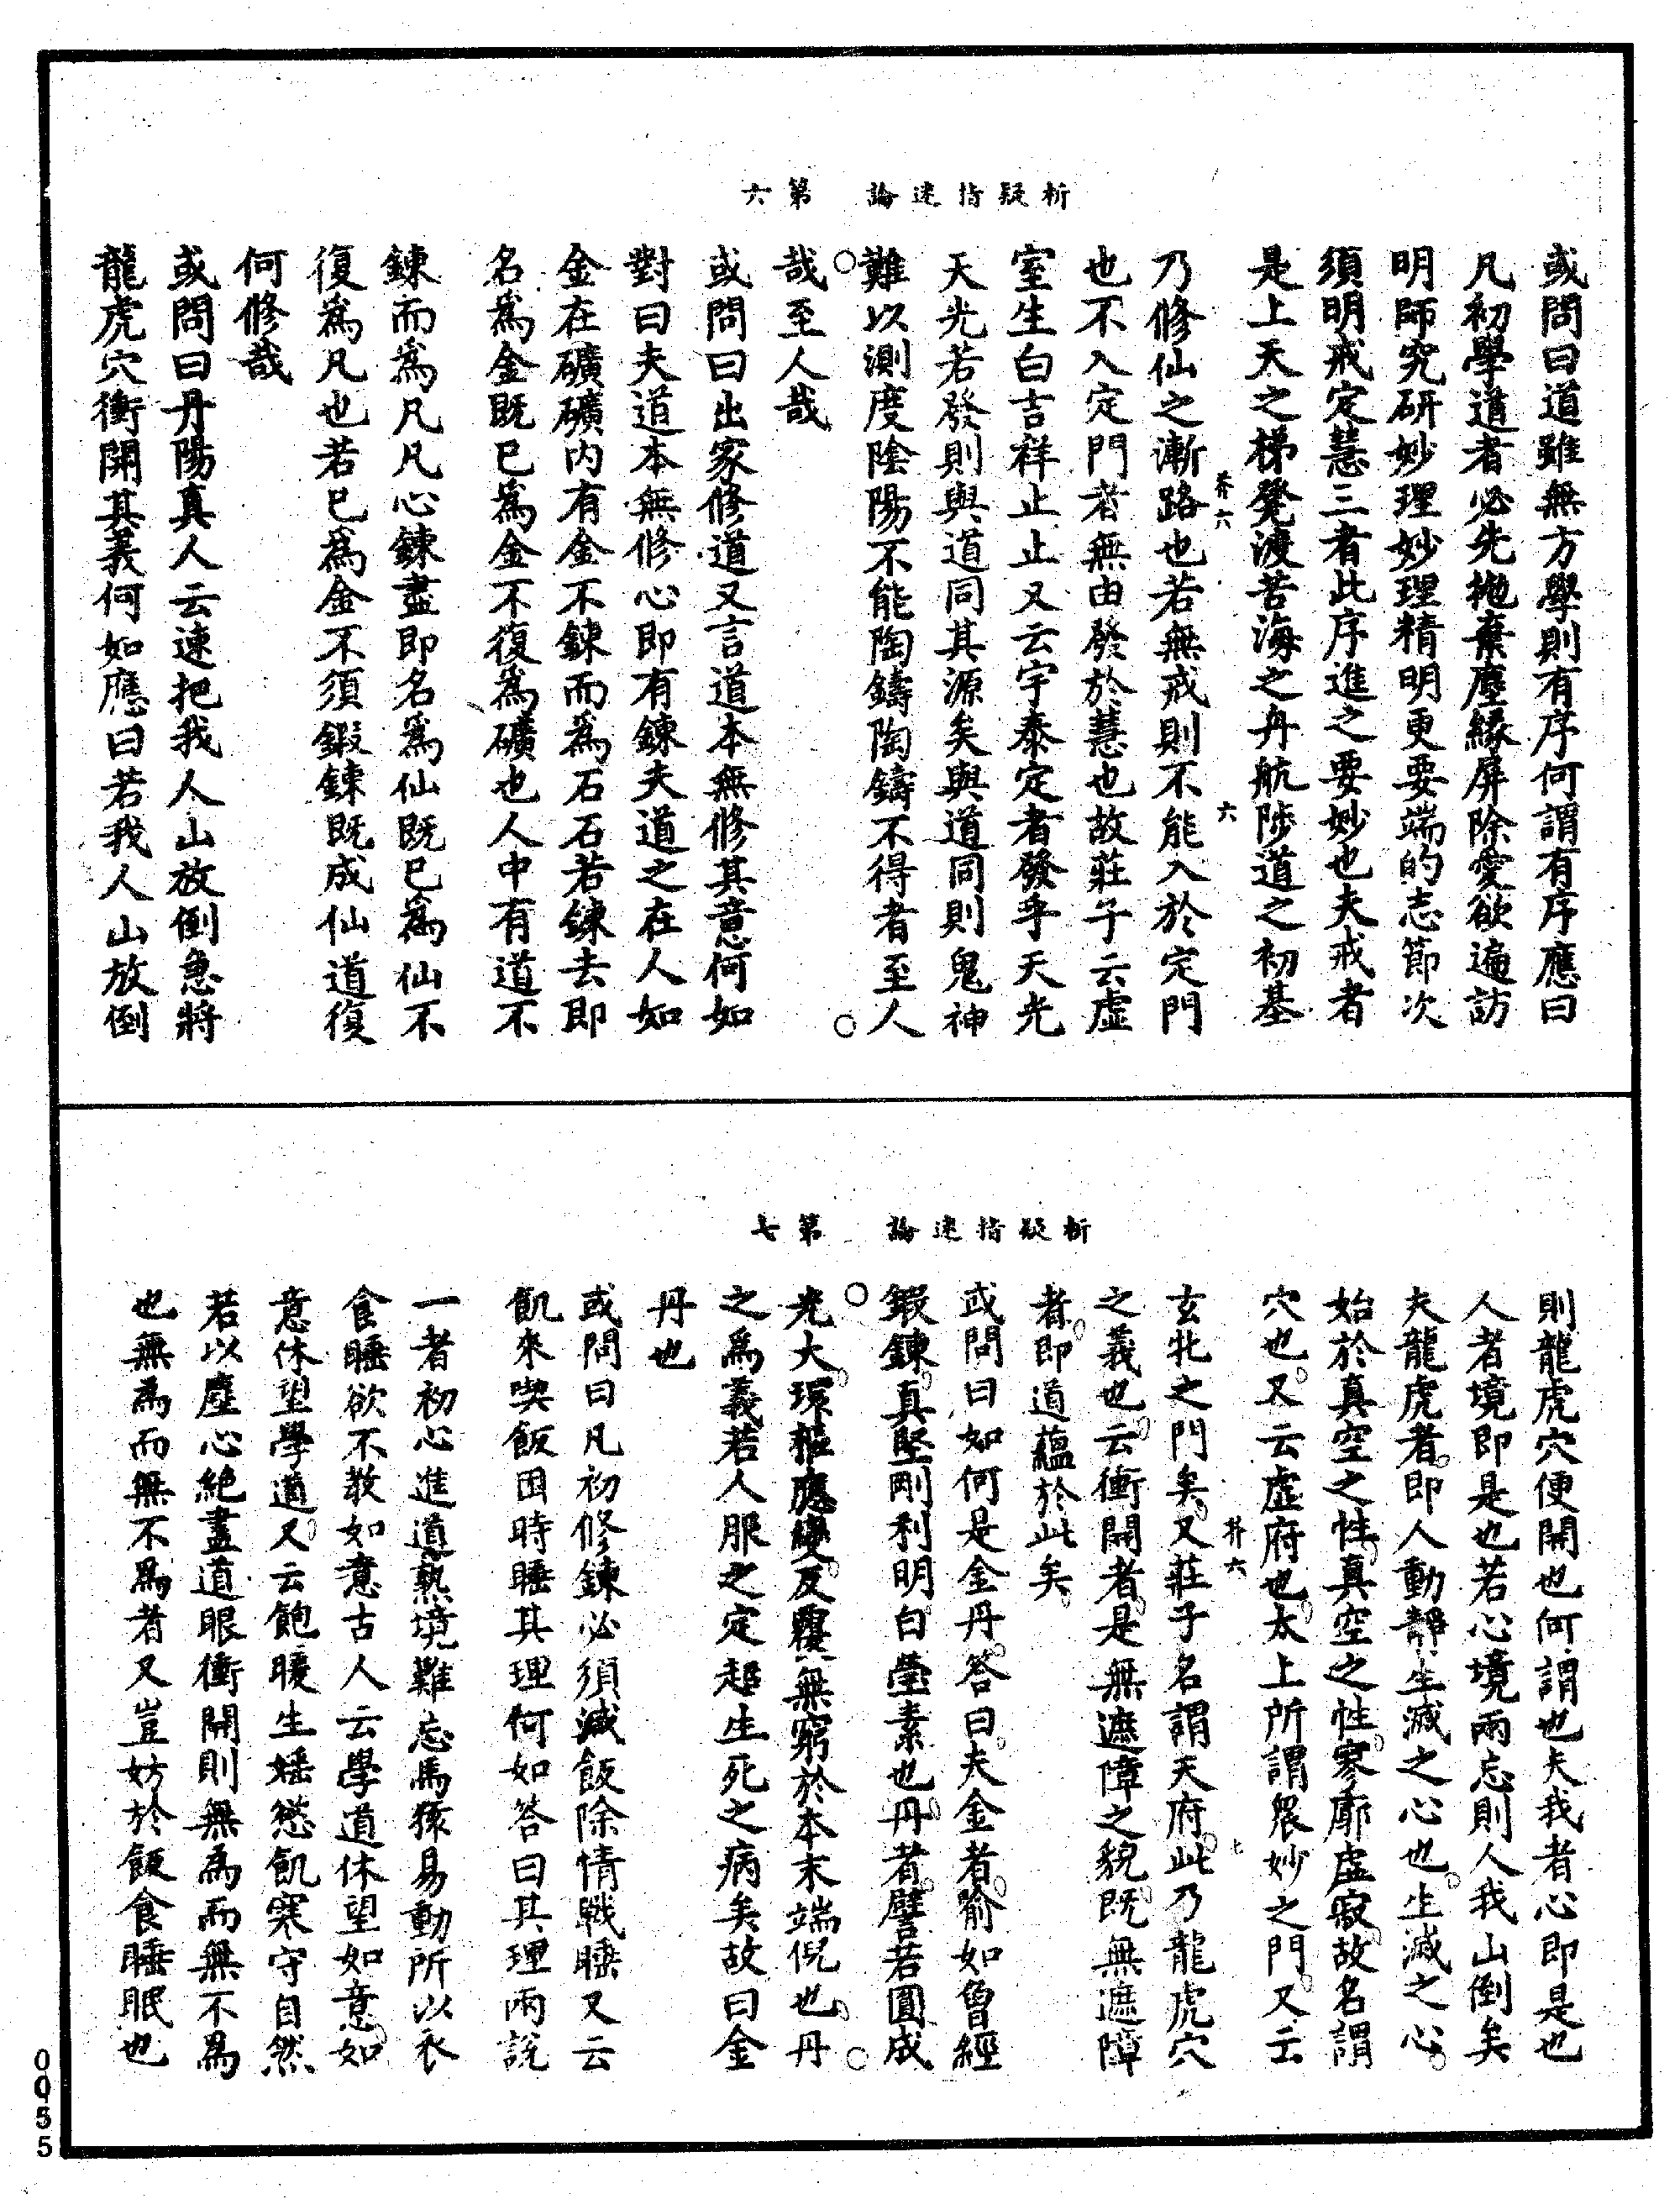 析疑指迷論　第六
或問曰道雖無方學則有序何謂有序應曰
凡初學道者必先拋棄塵緣屏除愛欲遍訪
明師究研妙理妙理精明更要端的志節次
須明戒定慧三者此序進之要妙也夫戒者
是上天之梯凳渡苦海之舟航陟道之初基
芥六　六
乃修仙之漸路也若無戒則不能入於定門
也不入定門者無由發於慧也故莊子云虛
室生白吉祥止止又云宇泰定者發乎天光
天光若發則與道同其源矣與道同則鬼神
難以測度陰陽不能陶鑄陶鑄不得者至人
哉至人哉
或問曰出家修道又言道本無修其意何如
對曰夫道本無修心即有鍊夫道之在人如
金在礦礦內有金不鍊而為石石若鍊去即
名為金既已為金不復為礦也人中有道不
鍊而為凡凡心鍊盡即名為仙既已為仙不
復為凡也若已為金不須鍛鍊既成仙道復
何修哉
或問曰丹陽真人云速把我人山放倒急將
龍虎穴衝開其義何如應曰若我人山放倒
析疑指迷論　第七
則龍虎穴便開也何謂也夫我者心即是也
人者境即是也若心境兩忘則人我山倒矣
夫龍虎者即人動靜生滅之心也生滅之心
始於真空之性真空之性寥廓虛寂故名謂
穴也又云虛府也太上所謂眾妙之門又云
芥六　七
玄牝之門矣又莊子名謂天府此乃龍虎穴
之義也云衝開者是無遮障之貌既無遮障
者即道蘊於此矣
或問曰如何是金丹答曰夫金者喻如曾經
鍛鍊真堅剛利明白瑩素也丹者譬若圓成
光大環樞應變反覆無窮於本末端倪也丹
之為義若人服之定超生死之病矣故曰金
丹也
或問曰凡初修鍊必須減飯除情戰睡又云
飢來喫飯困時睡其理何如答曰其理兩說
一者初心進道熟境難忘馬猿易動所以衣
食睡欲不教如意古人云學道休望如意如
意休望學道又云飽暖生婬慾飢寒守自然
若以塵心絕盡道眼衝開則無為而無不為
也無為而無不為者又豈妨於飯食睡眠也
0055